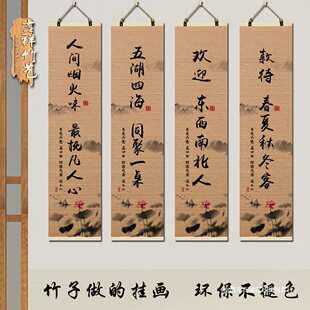 吉祥竹艺
人间烟火味 最抚凡人心
五湖四海 同聚一桌
欢迎 东西南北人
款待 春夏秋冬客
竹子做的挂画 环保不褪色